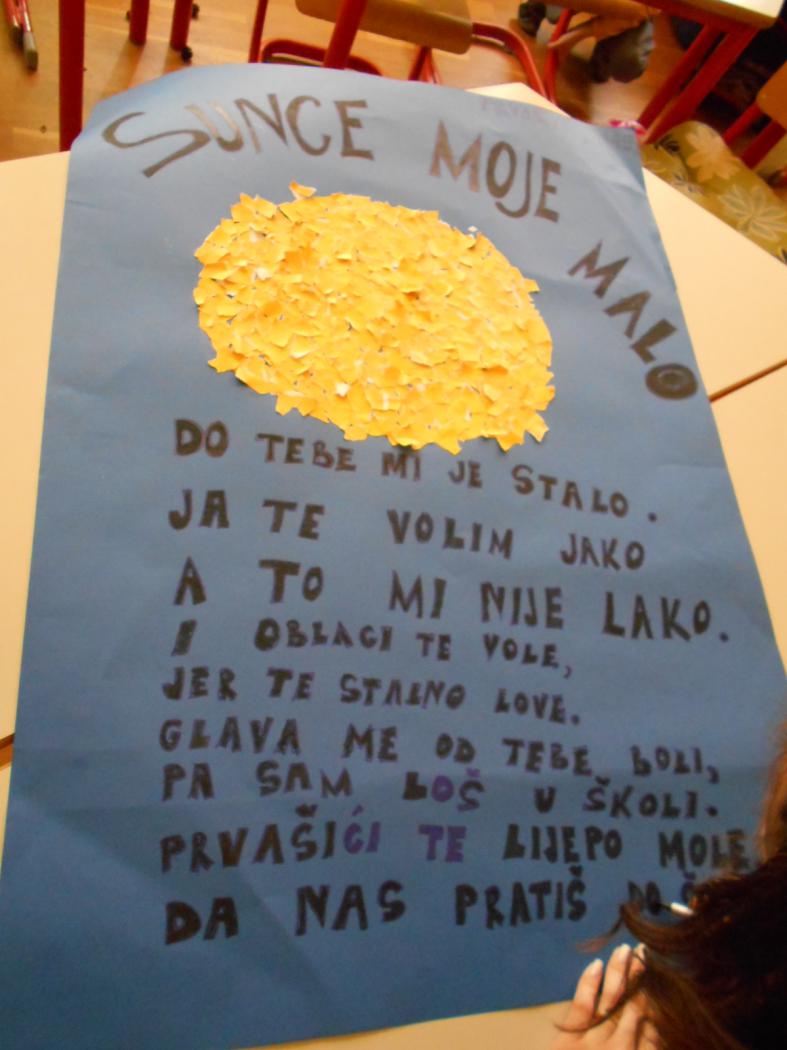 SUNCE MOJE MALO
DO TEBE MI JE STALO.
JA TE VOLIM JAKO
A TO MI NIJE LAKO.
I OBLACI TE VOLE,
JER TE STALNO LOVE.
GLAVA ME OD TEBE BOLI,
PA SAM LOŠ U ŠKOLI.
PRVAŠIĆI TE LIJEPO MOLE
DA NAS PRATIŠ DO